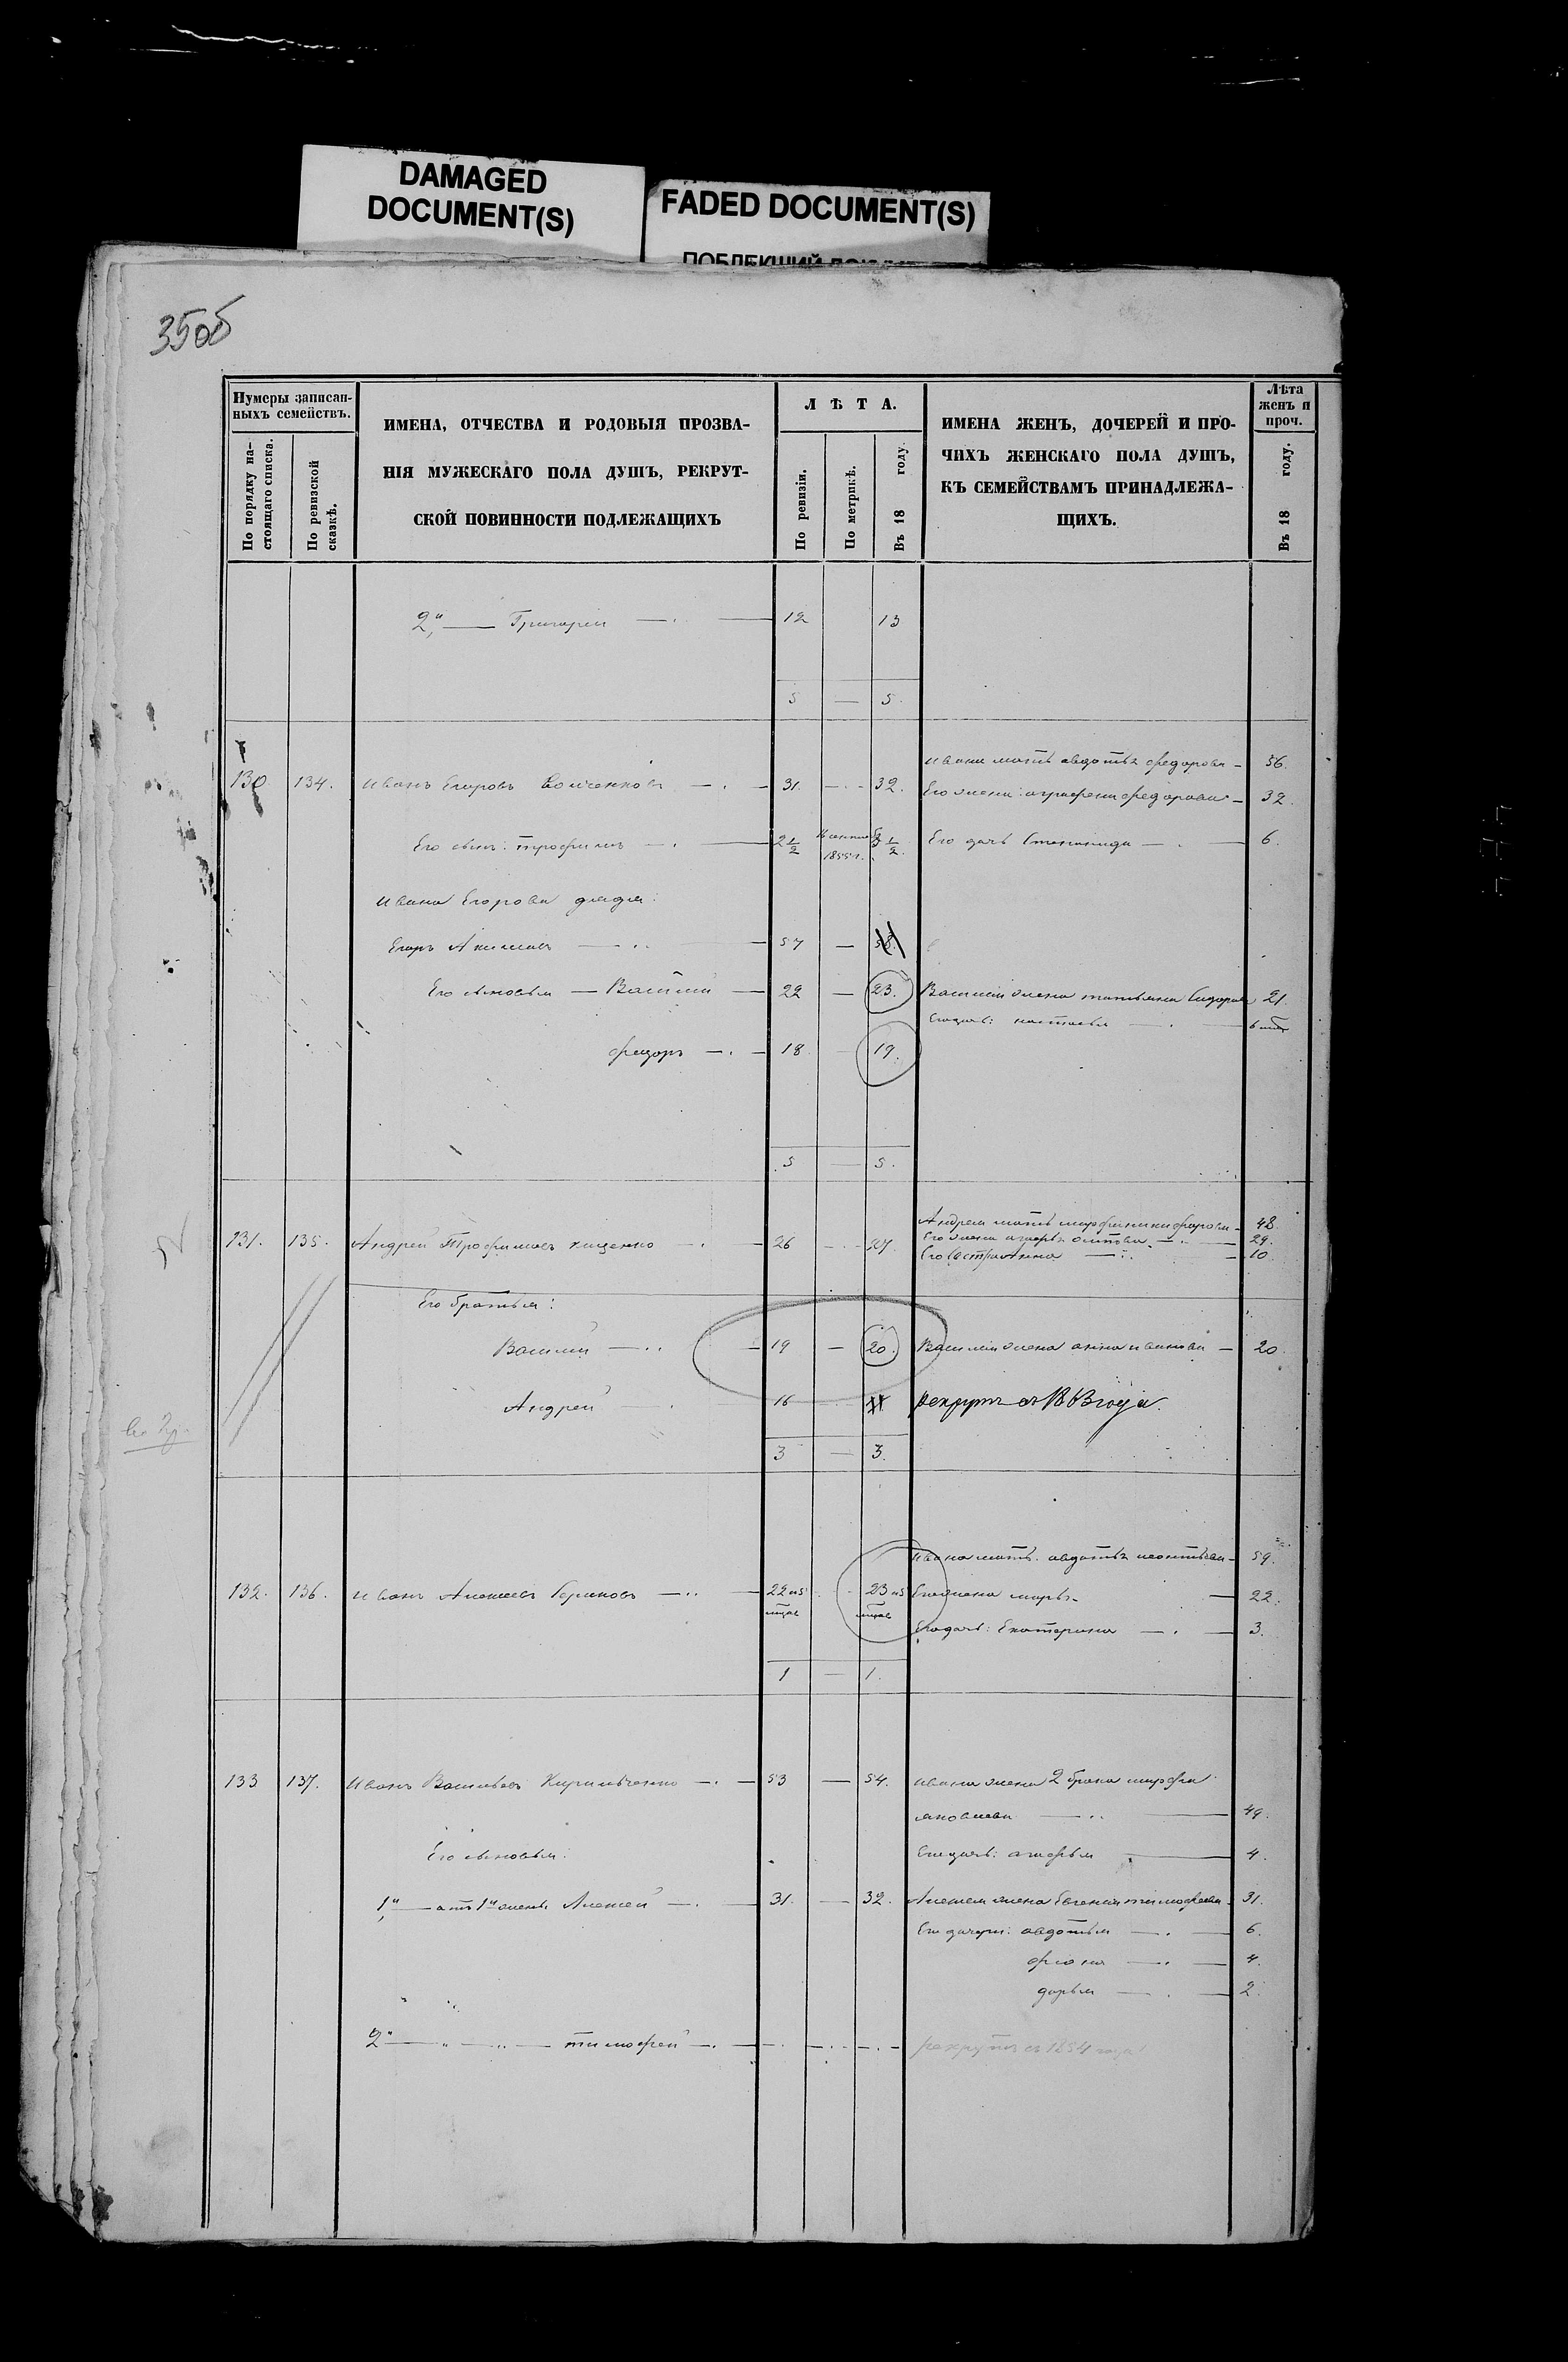 DAMAGED
DOCUMENT(S)
FADED DOCUMENT(S)
35об
Нумеры записан-
ныхъ семействъ.
По порядку на-
стоящаго списка.
По ревизской
сказкѣ.
ИМЕНА, ОТЧЕСТВА И РОДОВЫЯ ПРОЗВА-
НІЯ МУЖЕСКАГО ПОЛА ДУШЪ, РЕКРУТ-
СКОЙ ПОВИННОСТИ ПОДЛЕЖАЩИХЪ
ЛѢТА.
По ревизіи.
По метрикѣ.
Въ 18 году.
ИМЕНА ЖЕНЪ, ДОЧЕРЕЙ И ПРО-
ЧИХЪ ЖЕНСКАГО ПОЛА ДУШЪ,
КЪ СЕМЕЙСТВАМЪ ПРИНАДЛЕЖА-
ЩИХЪ.
Лѣта
женъ и
проч.
Въ 18 году.
2й — Григорей — 12 13
5 — 5.
Ивана мать авдотья федорова — 56.
130 134. Иванъ Егоровъ — 31. — 32.
Его жена: аграфена федорова — 32.
Его сынъ: трофимъ — 2 1/2 1855г. 3 1/2. Его дочь Степанида — 6.
Ивана Егорова дядя:
Егоръ Акимовъ — 57 — 58.
Его сыновья — Василий — 22 — 23. Василия жена татьяна Сидорова 21.
Его дочь: настасья —
федоръ — 18 19.
5 — 5.
Андрея мать марфа никифорова — 48.
131. 135. Андрей Трофимовъ кищенко — 26 — 27
Его жена — 29.
Его сестра Анна — 10
Его братья:
Василий — 19 — 20. Василия жена анна иванова — 20
Андрей 16 рекрутъ съ 1863 года.
3 — 3.
Ивана мать: авдотья леонтьева — 59.
132. 136. Иванъ Алексеевъ — 22 и 5 мцов 23 и 5 мцов
Его жена марья — 22.
Его дочь: Екатерина — 3.
1 — 1.
133 137. Иванъ Васильевъ Кирильченко — 53 — 54. Ивана жена 2 брака марфа
яковлева — 49.
Его сыновья:
Его дочь: агафья — 4.
1й — отъ 1й жены Алексей — 31. — 32. Алексея жена Евгения тимофеева 31.
Его дочери: авдотья — 6.
4.
дарья — 2.
2й — " — " — тимофей — рекрутъ съ 1854 года